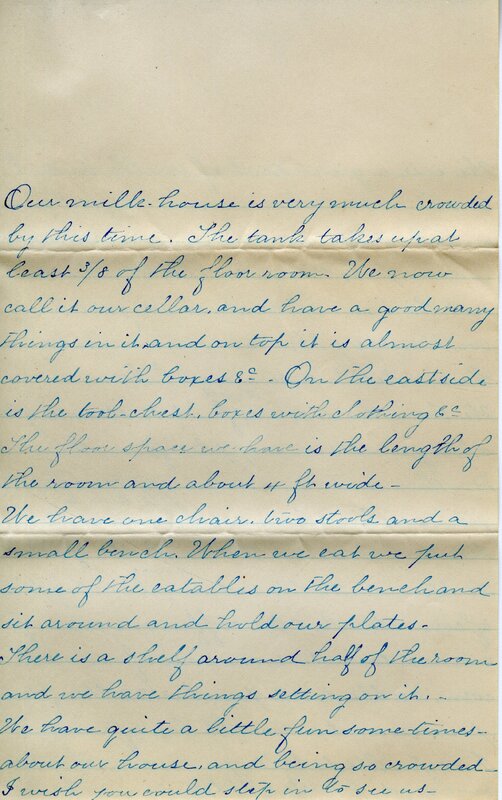 Our milk-house is very much crowded
by this time. The tank takes up at
least 3/8 of the floor room. We now
call it our cellar, and have a good many
things in it, and on top it is almost
covered with boxes &c. On the east side
is the tool-chest, boxes with clothing &c
The floor space we have is the length of
the room and about 4 ft wide-
We have one chair, two stools and a
small bench. When we eat we put
some of the eatabls on the bench and
sit around and hold our plates-
There is a shelf around half of the room
and we have things setting on it.-
We have quite a little fun some-times-
about our house, and being so crowded-
I wish you could step in to see us-